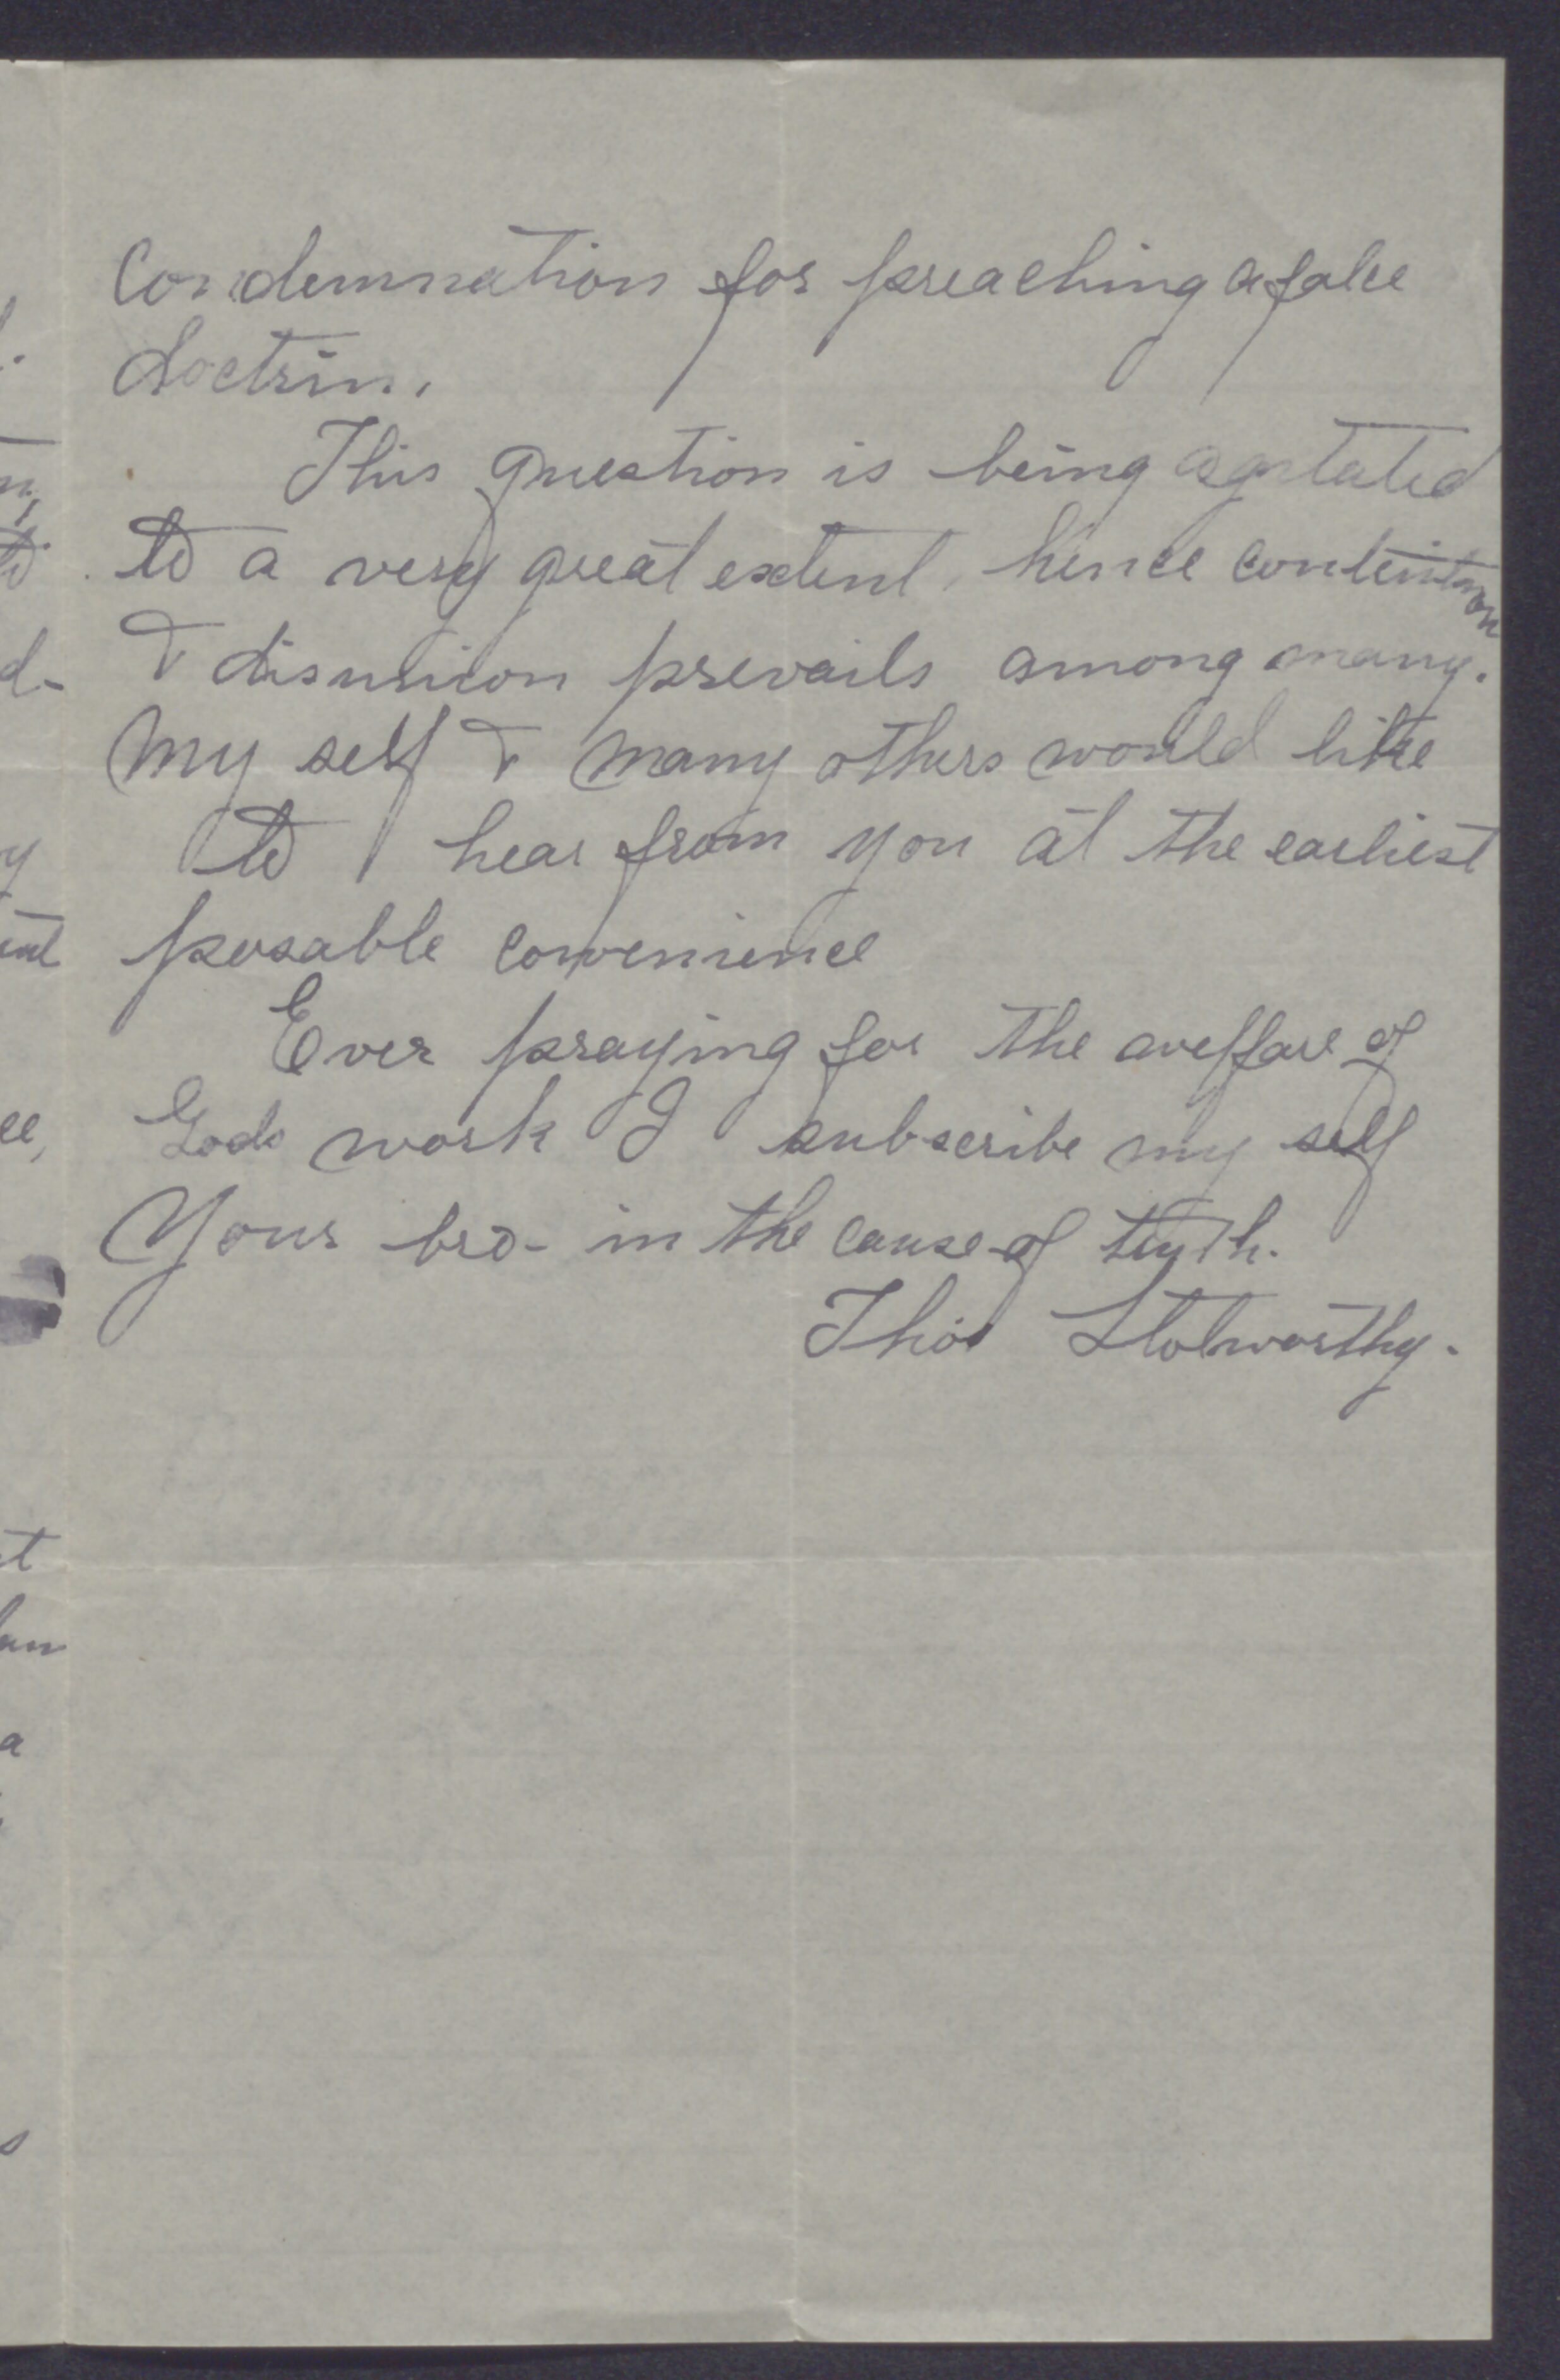 Condemnation for preaching a false
doctrin.
This question is being agitated
to a very great extent, hence contention
& disunion prevails among many.
My self & many others would like
to hear from you at the earliest
posable convenience
Ever praying for the welfare of
Gods work I subscribe my self
Your bro- in the cause of truth.
Thos Stolworthy.